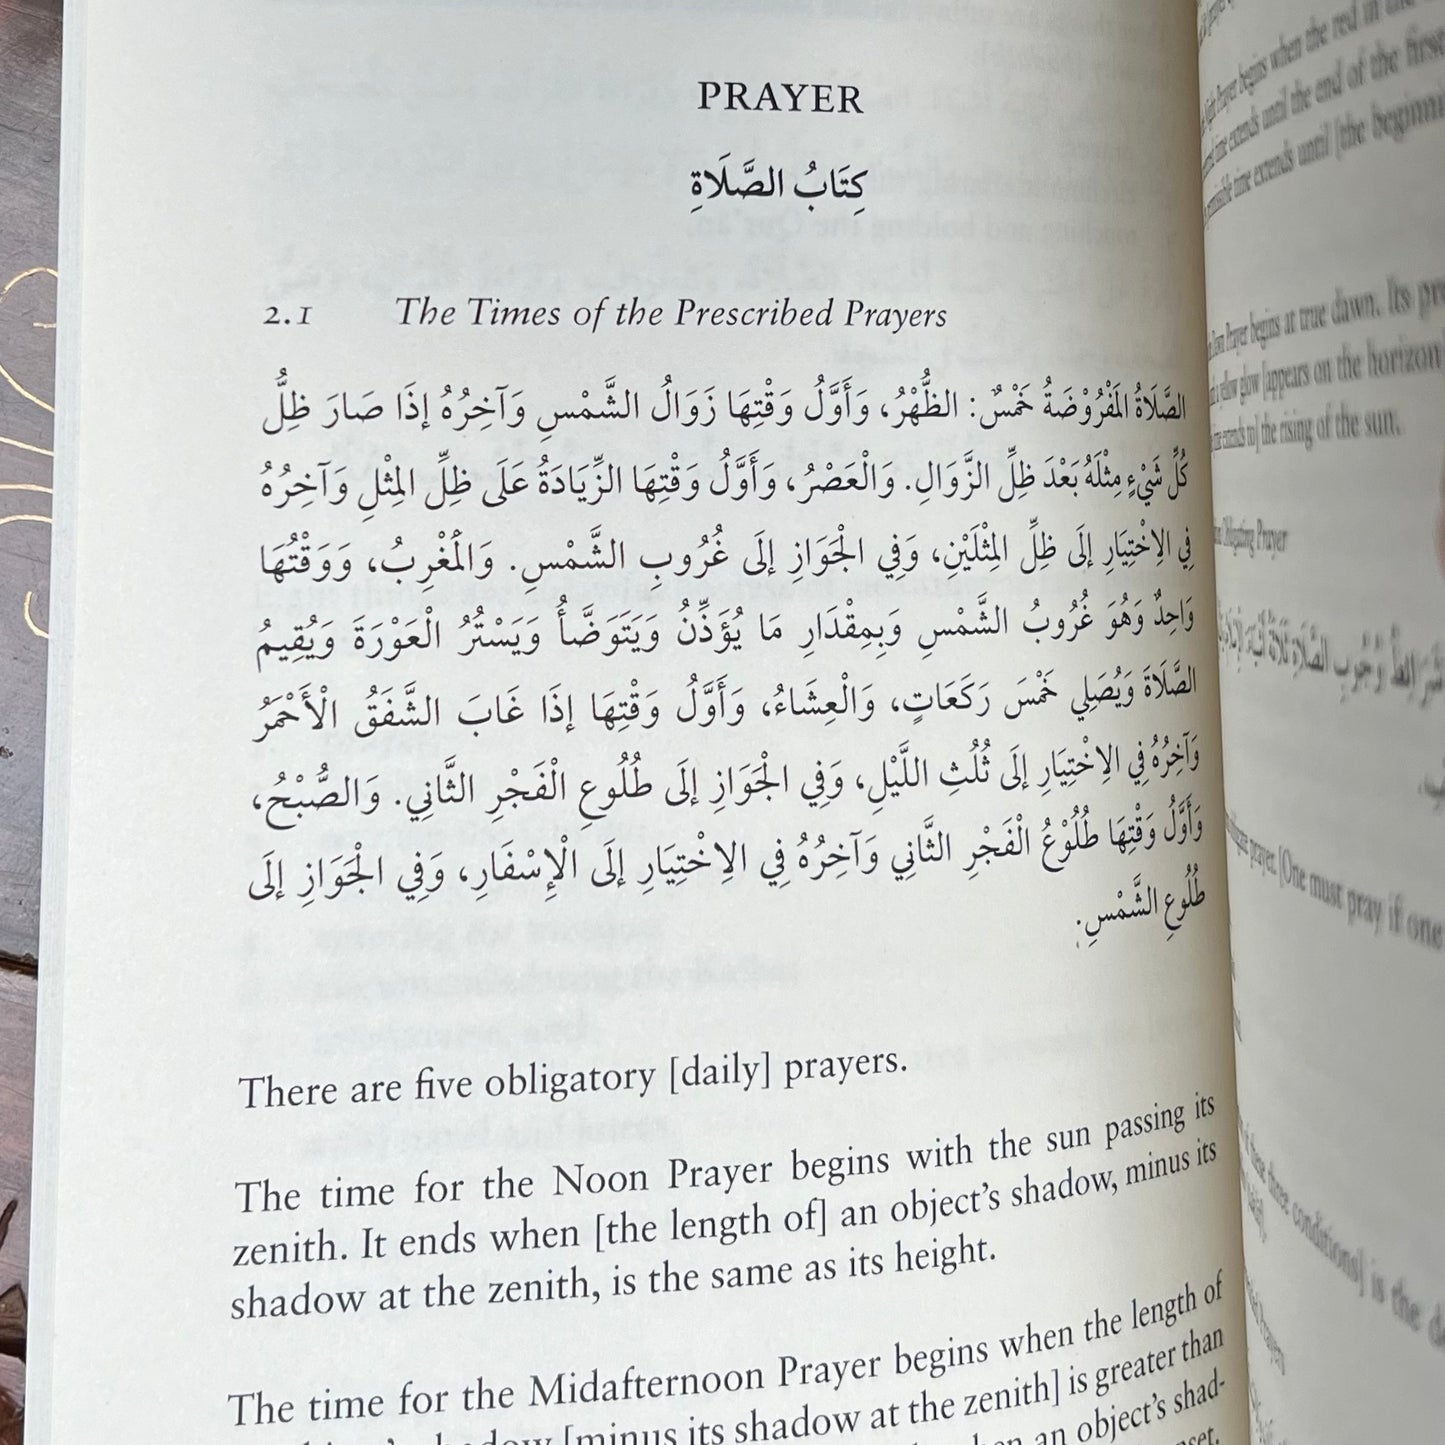 PRAYER
كِتَابُ الصَّلَاةِ
2.1 The Times of the Prescribed Prayers
الصَّلَاةُ المَفْرُوْضَةُ خَمْسٌ: الظُّهْرُ، وَأَوَّلُ وَقْتِهَا زَوَالُ الشَّمْسِ وَآخِرُهُ إِذَا صَارَ ظِلُّ
كُلِّ شَيْءٍ مِثْلَهُ بَعْدَ ظِلِّ الزَّوَالِ. وَالْعَصْرُ، وَأَوَّلُ وَقْتِهَا الزِّيَادَةُ عَلَى ظِلِّ المِثْلِ وَآخِرُهُ
فِي الِاخْتِيَارِ إِلَى ظِلِّ المِثْلَيْنِ، وَفِي الْجَوَازِ إِلَى غُرُوبِ الشَّمْسِ. وَالْمَغْرِبُ، وَوَقْتُهَا
وَاحِدٌ وَهُوَ غُرُوبُ الشَّمْسِ وَبِمِقْدَارِ مَا يُؤَذِّنُ وَيَتَوَضَّأُ وَيَسْتُرُ الْعَوْرَةَ وَيُقِيمُ
الصَّلَاةَ وَيُصَلِي خَمْسَ رَكَعَاتٍ، وَالْعِشَاءُ، وَأَوَّلُ وَقْتِهَا إِذَا غَابَ الشَّفَقُ الْأَحْمَرُ
وَآخِرُهُ فِي الِاخْتِيَارِ إِلَى ثُلُثِ اللَّيْلِ، وَفِي الْجَوَازِ إِلَى طُلُوعِ الْفَجْرِ الثَّانِي. وَالصُّبْحُ،
وَأَوَّلُ وَقْتِهَا طُلُوْعُ الْفَجْرِ الثَّانِي وَآخِرُهُ فِي الِاخْتِيَارِ إِلَى الْإِسْفَارِ، وَفِي الْجَوَازِ إِلَى
طُلُوعِ الشَّمْسِ.
There are five obligatory [daily] prayers.
The time for the Noon Prayer begins with the sun passing its
zenith. It ends when [the length of] an object's shadow, minus its
shadow at the zenith, is the same as its height.
The time for the Midafternoon Prayer begins when the length of
[minus its shadow at the zenith] is greater than
an object's shad-
Night Prayer begins when the red in the
time extends until the end of the first
time extends until [the beginnin
Dawn Prayer begins at true dawn. Its pre
yellow glow [appears on the horizon]
the rising of the sun.
Obligating Prayer
prayer. [One must pray if one
these three conditions] is the d